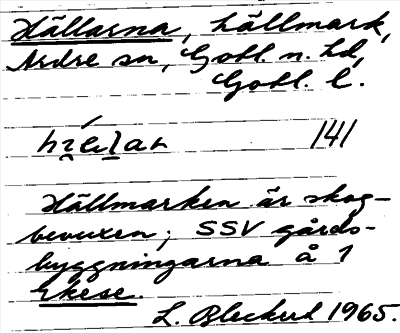 Hällarna, hällmark,
Ardre sn, Gotl. n. hd,
Gotl. l.
141
Hällmarken är skog-
bevuxen; SSV gårds-
byggningarna å 1
Ekese.
L. Bleckert 1965.